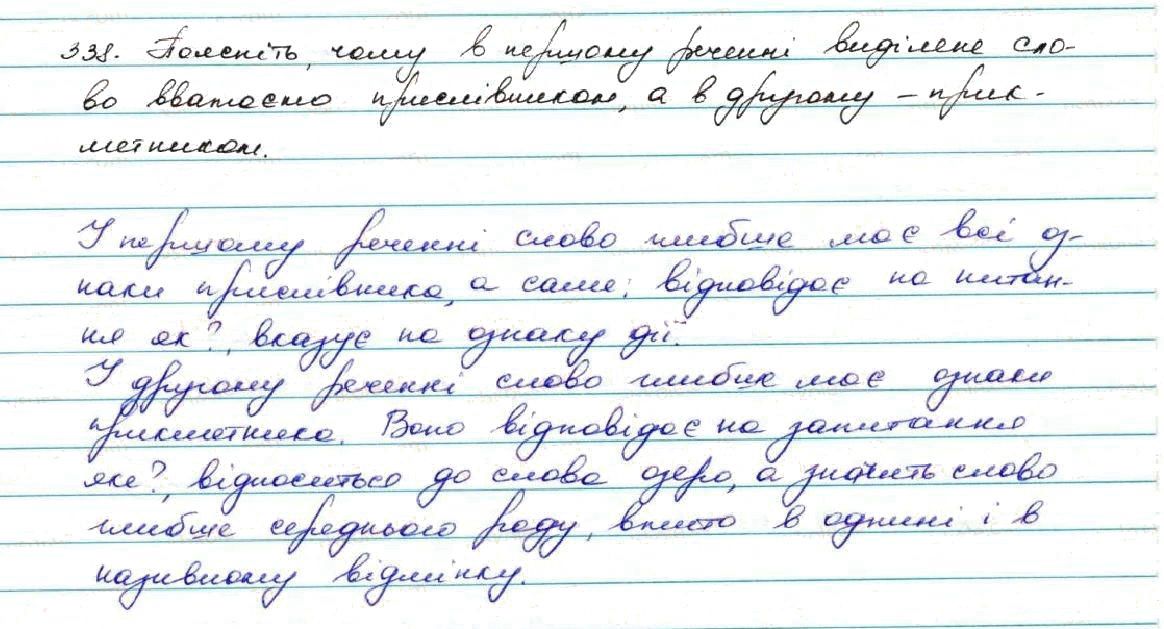 338. Поясніть, чому в першому реченні виділене сло-
во вважаємо прислівником, а в другому – прик-
метником.
У першому реченні слово глибше має всі оз-
наки прислівника, а саме: відповідає на питан-
ня як?, вказує на ознаку дії.
У другому реченні слово має ознаки
прикметника. Воно відповідає на запитання
яке?, відноситься до слова озеро, а значить слово
глибше середнього роду, вжито в однині і в
називному відмінку.